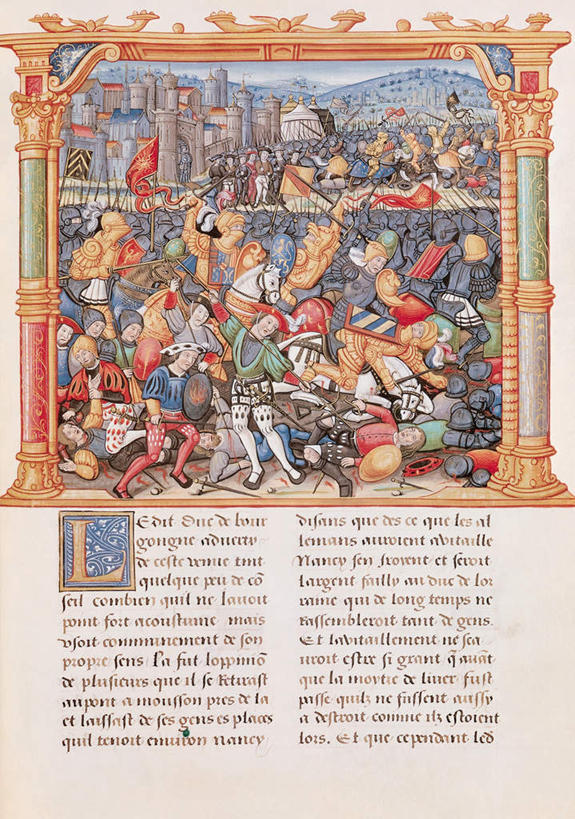 Ledit Duc de bour
gougne aduerty
de ceste venue tint
quelque peu de cõ
seil combien quil ne lauoit
point fort acoustume mais
vsoit communement de son
propre sens La fut loppiniõ
de plusieurs que il se Retirast
au pont a mousson pres de la
et laissast de ses gens es places
quil tenoit enuiron nancy
disans que des ce que les al
lemans auroient auitaille
Nancy sen jroyent et seroit
largent failly au duc de lor
raine qui de long temps ne
Rassembleroit tant de gens.
Et lauitaillement ne sca
uroit estre si grant q̃ auãt
que la moytie de liuer fust
passe quilz ne fussent aussy
a destroit comme ilz estoient
lors. Et que cependant led